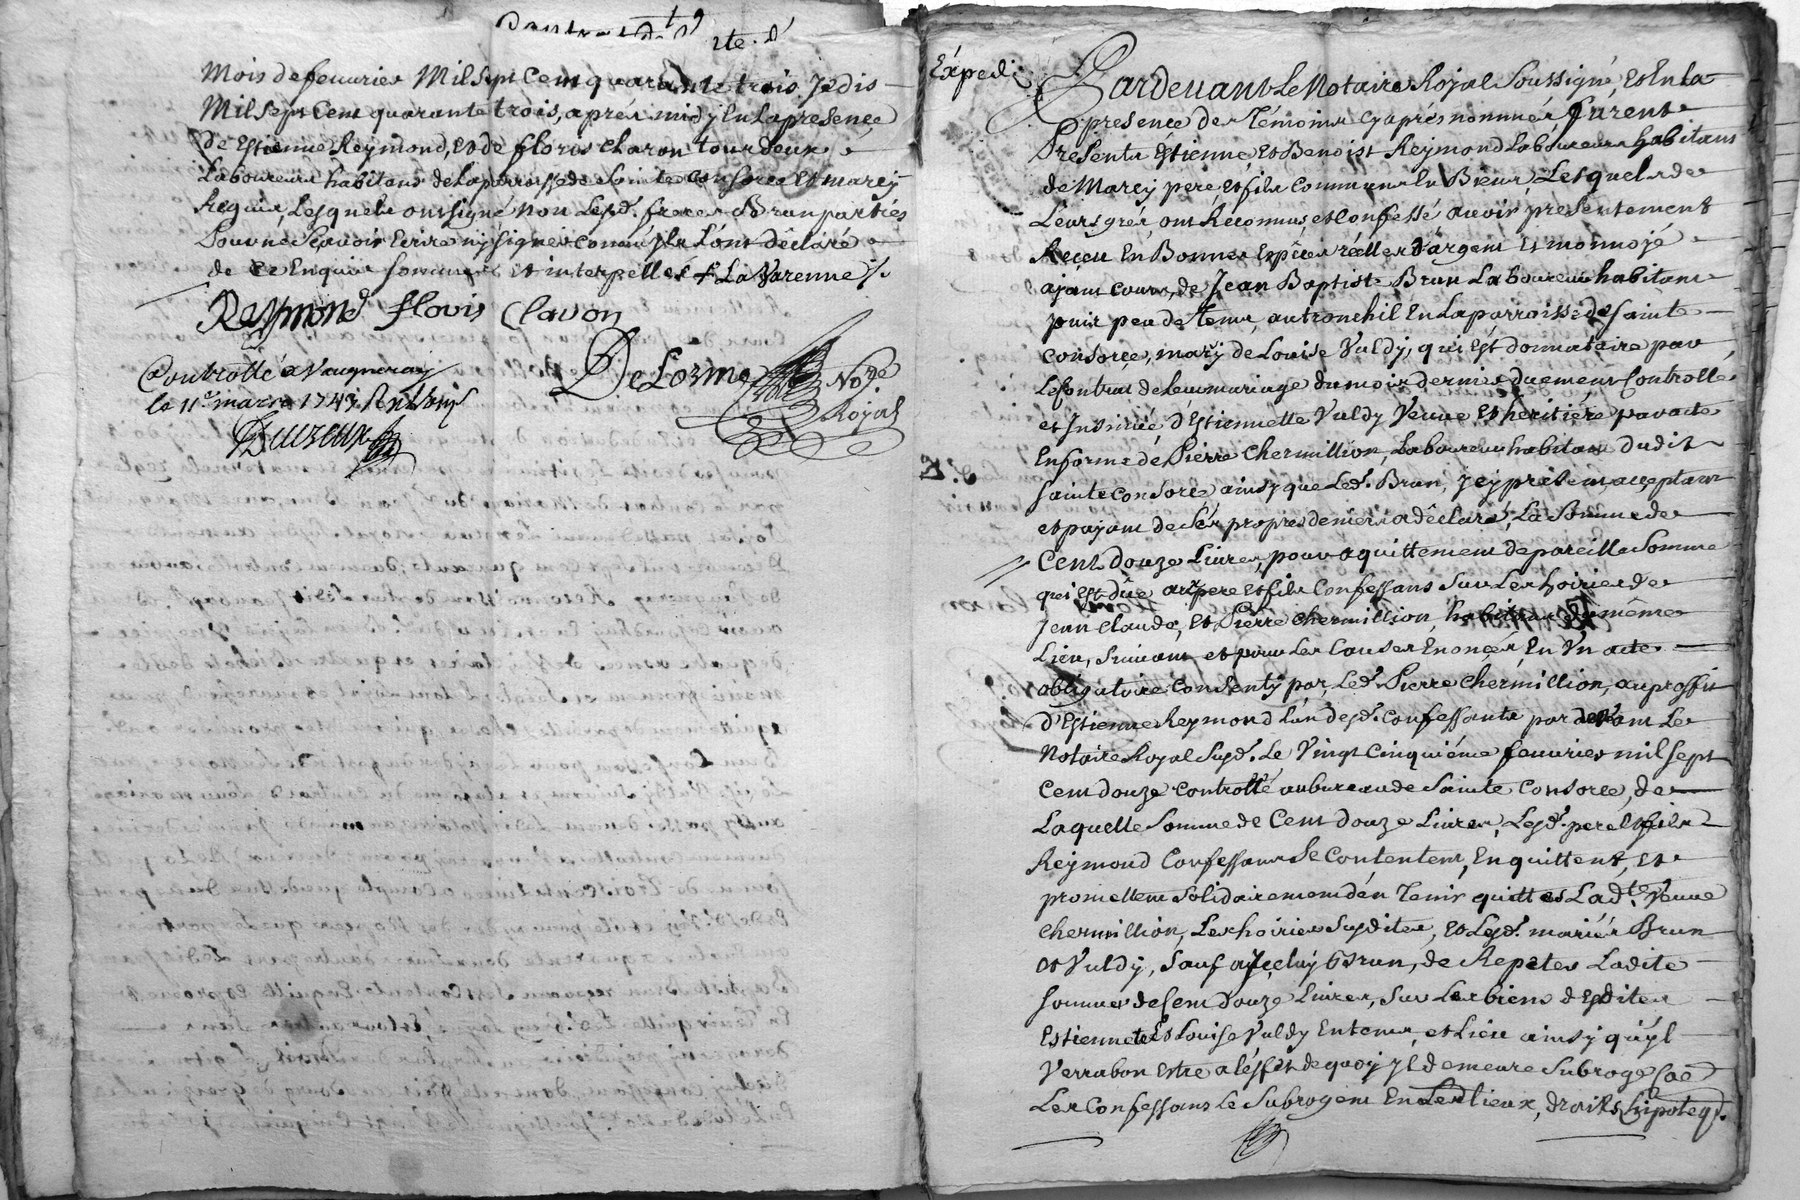 Mois defeuurier Mil Sept Cent quarante trois Jedis
Mil Sept Cent quarante trois, aprés midy En La presence
de Estienne Reymond, et de floris Claron tour deux
Laboureurs habitans de La parroisse de Sainte Consorce et marcÿ
Requis, Lesquels ont signé non Lesd. freres Brun parties
pour ne Sçavoir Ecrire nÿ signer comm'jls L'ont déclaré
de Ce Enquis sommés et interpellés & La Varenne ʃ.
Reymond floris Claron
DeLorme No.re
Royal
Controllé a Vaugneray
le 11e mars 1743 Reçu
Expedi
Pardeuant Le Notaire Royal Soussigné, et En La
presence des Témoins cyaprés nommés furent
Presents Estienne et Benoist Reymond Laboureurs habitans
de Marcÿ pere et fils communs En Biens, Lesquels de
Leurs grés, ont Reconnus, et Confessé auoir presentement
Reçeu En Bonnes Espéces réelles d'argent et monnoje
ajant cours, de Jean Baptiste Brun Laboureur habitant
puis peu de tems, au tronchil En La parroisse de Sainte
Consorce, marÿ de Louise Vuldy, qui Est donnataire par
Le Contrat de Leur mariage du mois dernier duement Controllé
et Insinué d'Estiennette Vuldy Veuue et heritiére par acte
En forme de Pierre Chermillion, Laboureur habitant dudit
Sainte Consorce ainsy que Led. Brun, jcy present, acceptant
et pajant de Ses propres deniers a déclaré, La Somme de
Cent douze Liures, pour aquittement de pareille Somme
qui Est dûe aux pere et fils Confessans Sur Les hoiries de
Jean Claude, et Pierre Chermillion, habitans du méme
Lieu, Suiuant et pour Les Causes Enoncés En Vn acte
obligatoire Consentÿ par, Led. Pierre Chermillion, au proffit
d'Estienne Reymond L'un desd. confessants par devant Le
Notaire Royal Susd. Le Vingt Cinquiéme feuurier mil Sept
Cent douze Controllé au bureau de Sainte Consorce, de
Laquelle Somme de Cent douze Liures, Lesd. pere et fils
Reymond Confessans Se Contentent, En quittent, et
promettent Solidairement d'en Tenir quittes Lad.te Veuue
Chermillion, Les hoiries Susdites, et Lesd. mariés Brun
et Vuldÿ, Sauf a Jceluÿ Brun, de Repeter Ladite
Somme de Cent Douze Liures, Sur Les biens desdites
Estiennette et Louise Vuldy En tems, et Lieu ainsy qu'yl
Verra bon Estre a L'effet de quoy jl demeure Subrogé Coe
Les Confessans Le Subrogent En Leurs lieux, droits hipoteq.